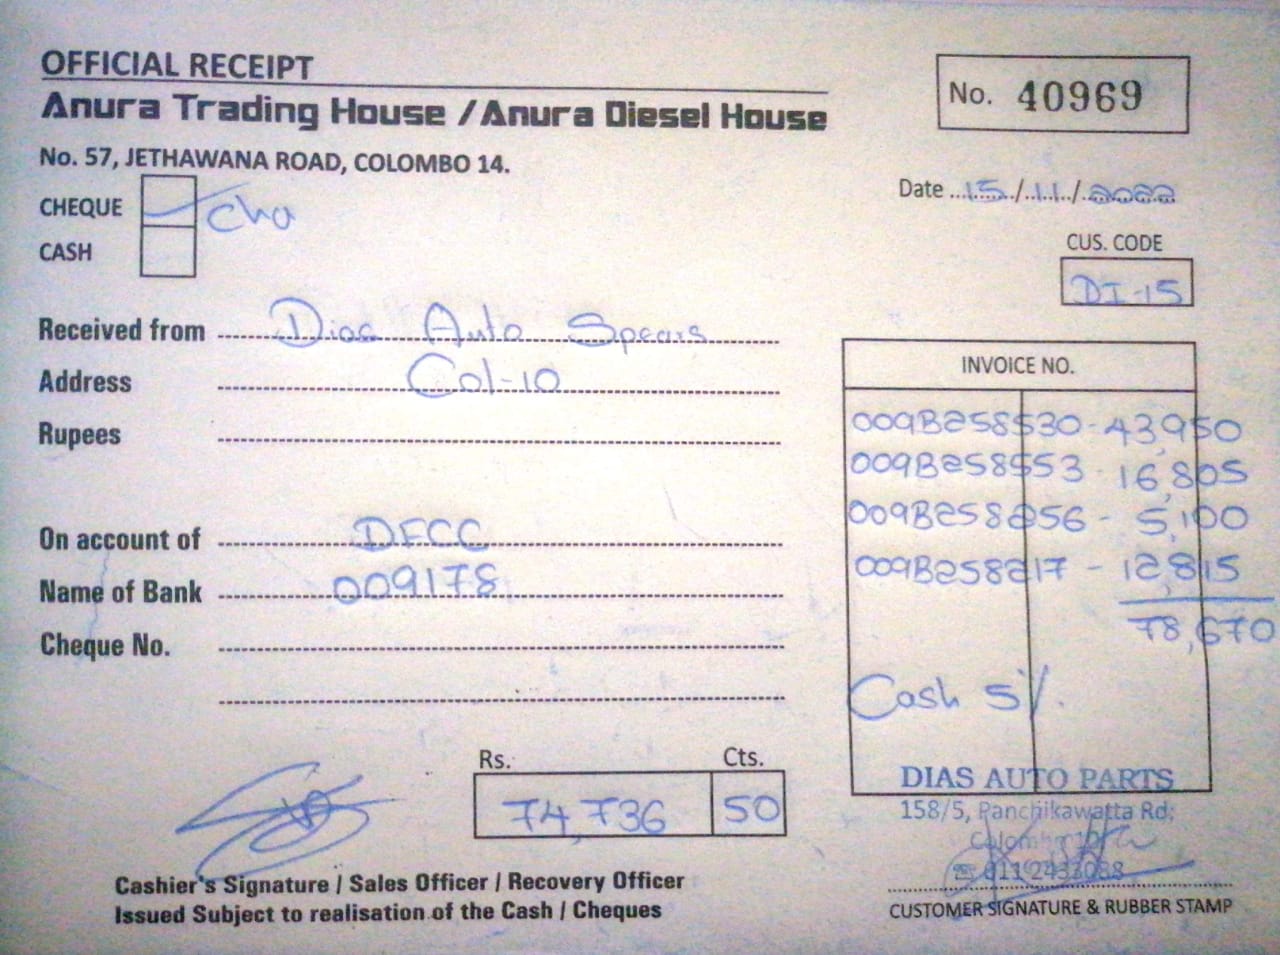 OFFICIAL RECEIPT
No. 40969
Anura Trading House / Anura Diesel House
No. 57, JETHAWANA ROAD, COLOMBO 14.
Date 15/11/2022
CHEQUE
CASH
CUS. CODE
DI-15
Received from Dias Auto Spears
Address Col-10
Rupees
INVOICE NO.
009B258530 - 43,950
009B258553 - 16,805
009B258256 - 5,100
009B258217 - 12,815
78,670
Cash 5%
On account of DFCC
Name of Bank 009178
Cheque No.
Rs. Cts.
74,736 50
DIAS AUTO PARTS
158/5, Panchikawatta Rd,
Colombo 10
Cashier's Signature / Sales Officer / Recovery Officer
Issued Subject to realisation of the Cash / Cheques
CUSTOMER SIGNATURE & RUBBER STAMP